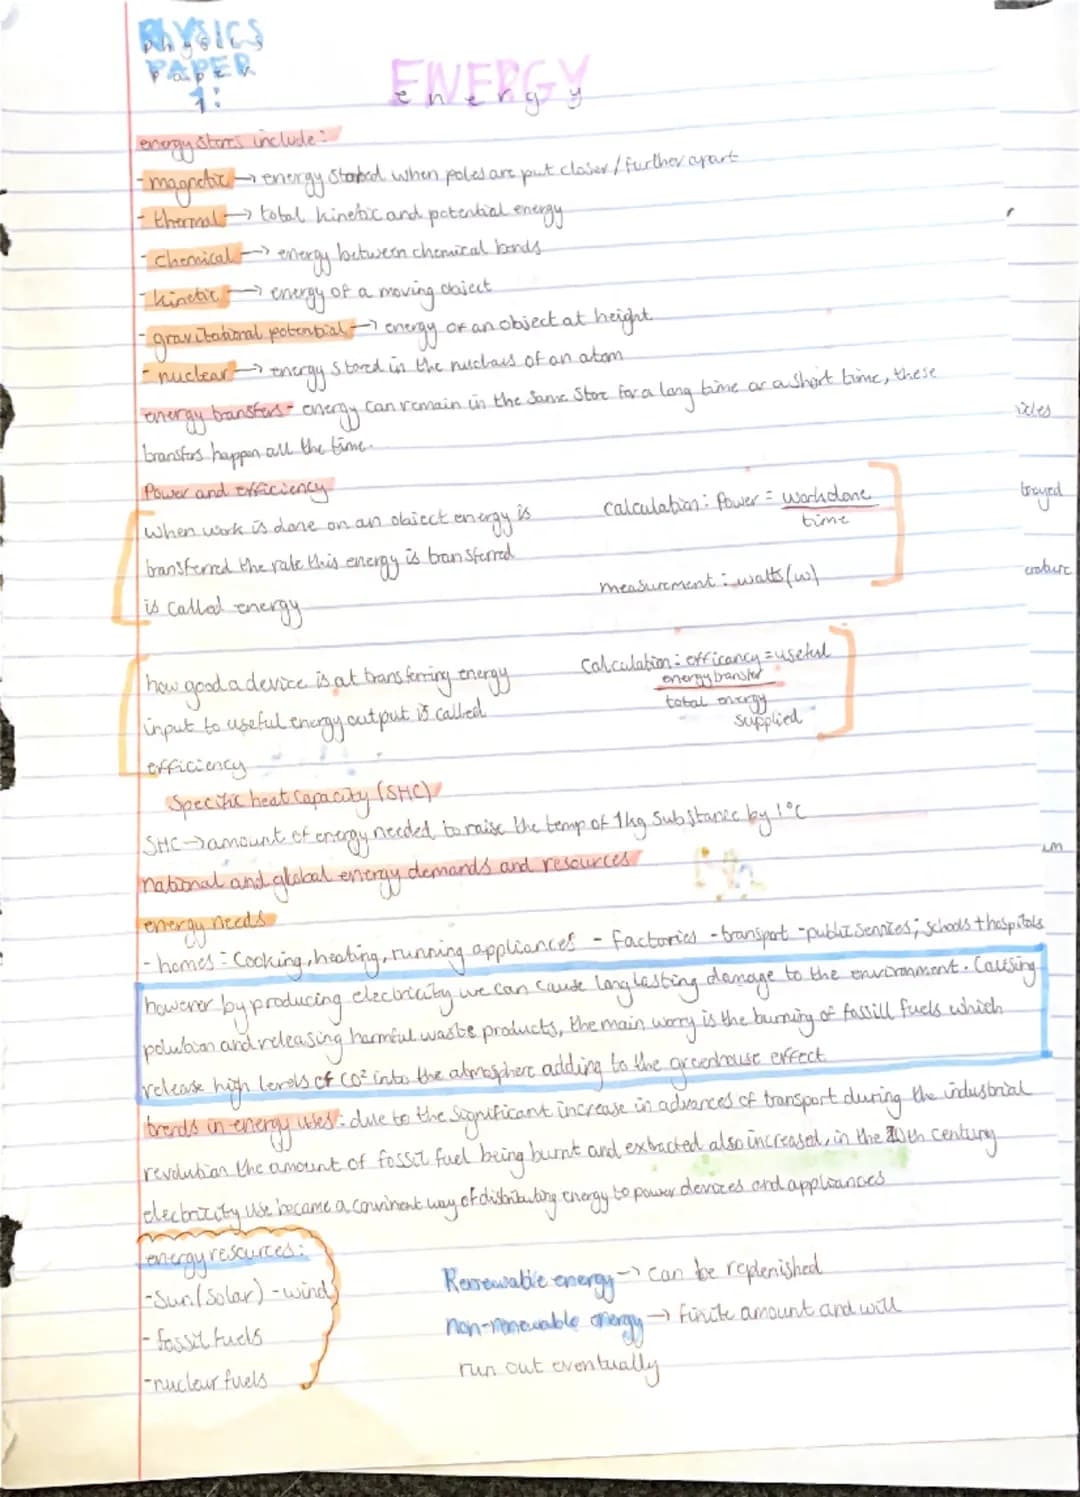 PHYSICS
physics
PAPER
paper
1:
ENERGY
energy
energy stores include:
- magnetic → energy stored when poles are put closer / further apart
- thermal → total kinetic and potential energy
- chemical → energy between chemical bonds
- kinetic → energy of a moving object
- gravitational potential → energy of an object at height
- nuclear → energy stored in the nucleus of an atom
energy transfers - energy can remain in the same store for a long time or a short time, these
transfers happen all the time.
Power and efficiency
when work is done on an object energy is
transferred the rate this energy is transferred
is called energy
calculation: Power = work done
time
measurement: watts (w)
how good a device is at transferring energy
input to useful energy output is called
efficiency
Calculation: efficancy = useful
energy transfer
total energy
supplied
Specific heat capacity (SHC)
SHC → amount of energy needed to raise the temp of 1kg substance by 1°C
national and global energy demands and resources
energy needs
- homes = Cooking, heating, running appliances - factories - transport - public services; schools + hospitals
however by producing electricity we can cause long lasting damage to the environment. Causing
polution and releasing harmful waste products, the main worry is the burning of fossill fuels which
release high levels of CO² into the atmosphere adding to the greenhouse effect
trends in energy uses: due to the significant increase in advances of transport during the industrial
revolution the amount of fossil fuel being burnt and extracted also increased, in the 20th century
electricity use became a convinent way of distributing energy to power devices and appliances
energy resources:
- Sun (solar) - wind
- fossil fuels
- nuclear fuels
Renewable energy → can be replenished
non-renewable energy → finite amount and will
run out eventually
icles
troyed
erature
um